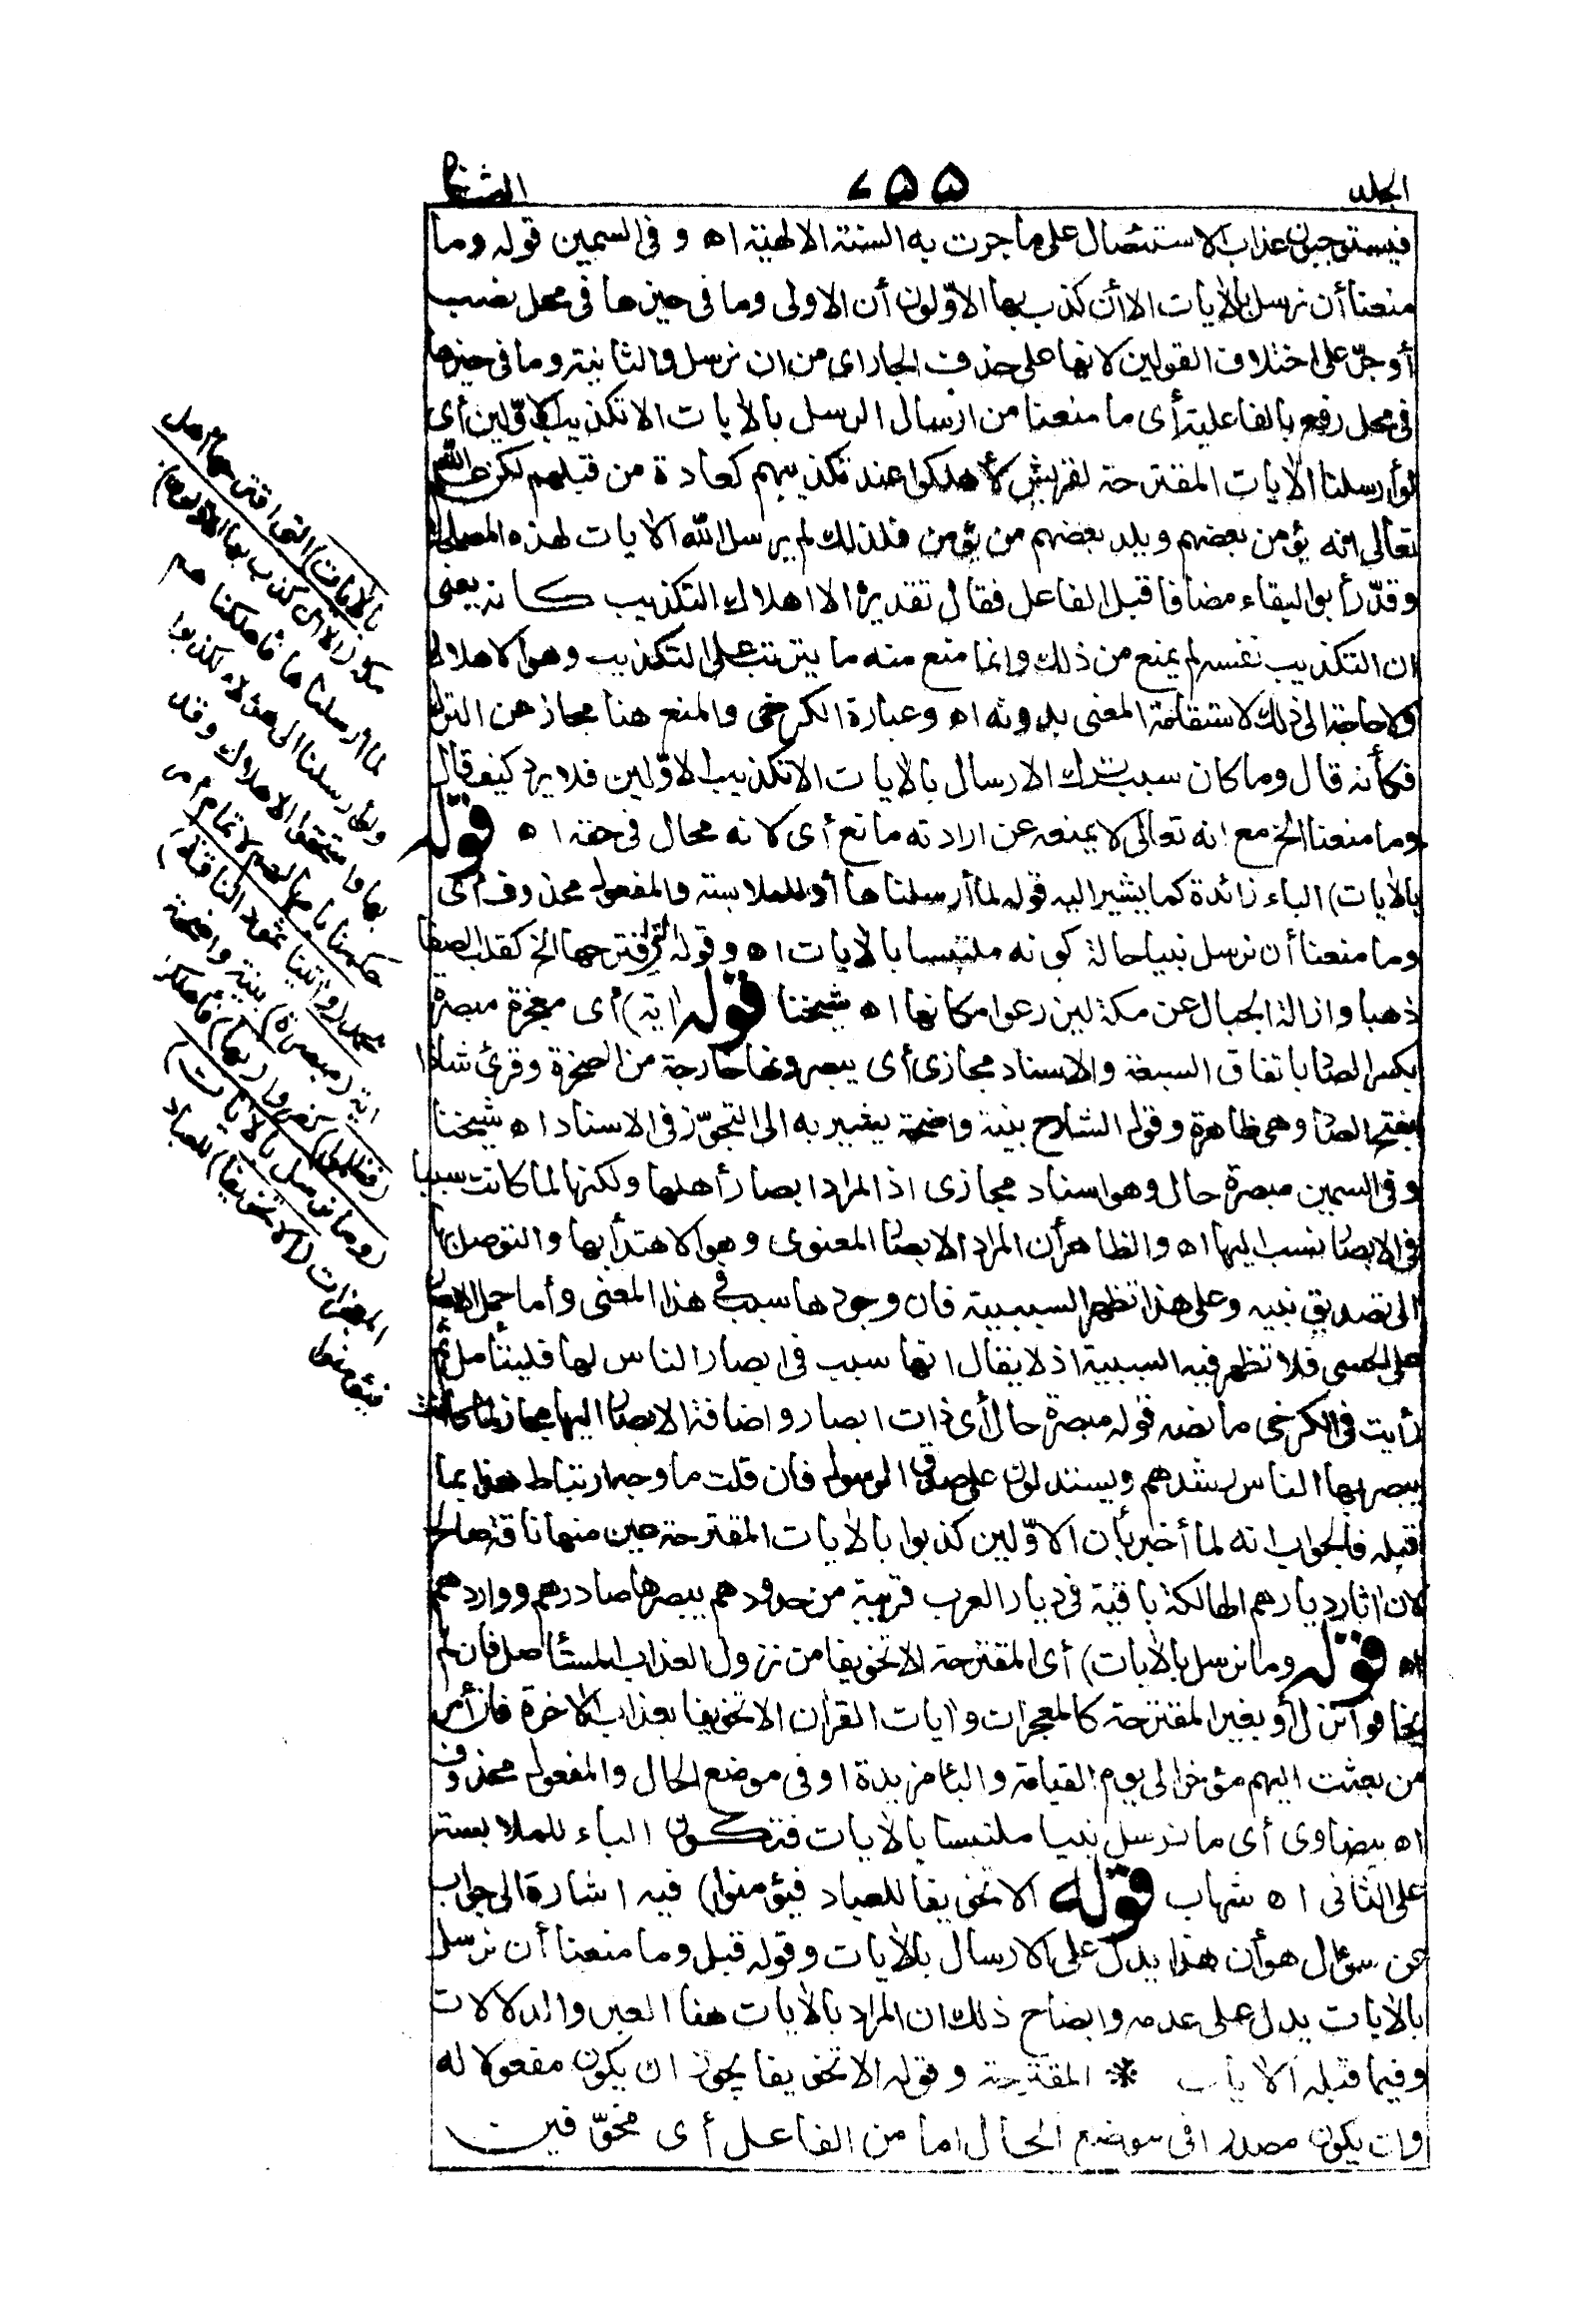 الجلد ٦٥٥ الثاني
فيستوجبون عذاب الاستئصال على ما جرت به السنة الالهية اه وفى السمين قوله وما
منعنا أن نرسل بالأيات الا أن كذب بها الاوّلون أن الاولى وما فى حيزها فى محل نصب
أو جرّ على اختلاف القولين لانها على حذف الجار اى من ان نرسل والثانية وما فى حيزها
فى محل رفع بالفاعلية أى ما منعنا من ارسال الرسل بالأيات الا تكذيب الاوّلين أى
لو أرسلنا الأيات المقترحة لقريش لأهلكوا عند تكذيبهم كعادة من قبلهم لكن علم الله
تعالى انه يؤمن بعضهم ويلد بعضهم من يؤمن فلذلك لم يرسل الله الأيات لهذه المصلحة
وقدّر أبو البقاء مضافا قبل الفاعل فقال تقديره الا اهلاك التكذيب كانه يعنى
ان التكذيب نفسه لم يمنع من ذلك وانما منع منه ما يترتب على التكذيب وهو الاهلاك
ولا حاجة الى ذلك لاستقامة المعنى بدونه اه وعبارة الكرخى والمنع هنا مجاز عن الترك
فكأنه قال وما كان سبب ترك الارسال بالأيات الا تكذيب الاوّلين فلا يرد كيف قال
وما منعنا الخ مع انه تعالى لا يمنعه عن ارادته مانع أى لانه محال فى حقه اه قوله
بالأيات) الباء زائدة كما يشير اليه قوله لما أرسلناها أو للملابسة والمفعول محذوف أى
وما منعنا أن نرسل نبيا حالة كونه ملتبسا بالأيات اه وقوله التى اقترحها الخ كقلب الصفا
ذهبا وازالة الجبال عن مكة ليزرعوا مكانها اه شيخنا قوله اية) أى معجزة مبصرة
بكسر الصاد باتفاق السبعة والاسناد مجازى أى يبصرونها خارجة من الصخرة وقرئ شاذا
بفتح الصاد وهى ظاهرة وقول الشارح بينة واضحة يشير به الى التجوّز فى الاسناد اه شيخنا
وفى السمين مبصرة حال وهو اسناد مجازى اذ المراد ابصار أهلها ولكنها لما كانت سببا
فى الابصار نسب اليها اه والظاهر أن المراد الابصار المعنوى وهو الاهتداء بها والتوصل بها
الى تصديق نبيه وعلى هذا تظهر السببية فان وجودها سبب فى هذا المعنى وأما حمل الابصار
على الحسى فلا تظهر فيه السببية اذ لا يقال انها سبب فى ابصار الناس لها فليتأمل ثم
رأيت فى الكرخى ما نصه قوله مبصرة حال أى ذات ابصار واضافة الابصار اليها مجاز لما كانت
يبصر بها الناس رشدهم ويستدلون على صدق الرسول فان قلت ما وجه ارتباط هذا بما
قبله فالجواب انه لما أخبر بأن الاوّلين كذبوا بالأيات المقترحة عين منها ناقة صالح
لان اثار ديارهم الهالكة باقية فى ديار العرب قريبة من حدودهم يبصرها صادرهم وواردهم
اه قوله وما نرسل بالأيات) أى المقترحة الا تخويفا من نزول العذاب المستأصل فان لم
يخافوا نزل أو بغير المقترحة كالمعجزات وايات القران الا تخويفا بعذاب الاخرة فان أمر
من بعثت اليهم مؤخر الى يوم القيامة والباء مزيدة او فى موضع الحال والمفعول محذوف
اه بيضاوى أى ما نرسل نبيا ملتبسا بالأيات فتكون الباء للملابسة
على الثانى اه شهاب قوله الا تخويفا للعباد فيؤمنوا) فيه اشارة الى جواب
عن سؤال هو أن هذا يدل على الارسال بالأيات وقوله قبل وما منعنا أن نرسل
بالأيات يدل على عدمه وايضاح ذلك ان المراد بالأيات هنا العبر والدلالات
وفيما قبله الأيات * المقترحة وقوله الا تخويفا يجوز ان يكون مفعولا له
وان يكون مصدرا فى موضع الحال اما من الفاعل أى مخوّفين
بالأيات) التى اقترحها أهل
مكة (الا أن كذب بها الاولون)
لما أرسلناها فأهلكناهم
ولو أرسلنا الى هؤلاء لكذبوا
بها واستحقوا الاهلاك وقد
حكمنا بامهالهم لاتمام أمر
محمد (واتينا ثمود الناقة)
اية (مبصرة) بينة واضحة
(فظلموا) كفروا (بها) فأهلكوا
(وما نرسل بالأيات)
المعجزات (الا تخويفا) للعباد
فيؤمنوا